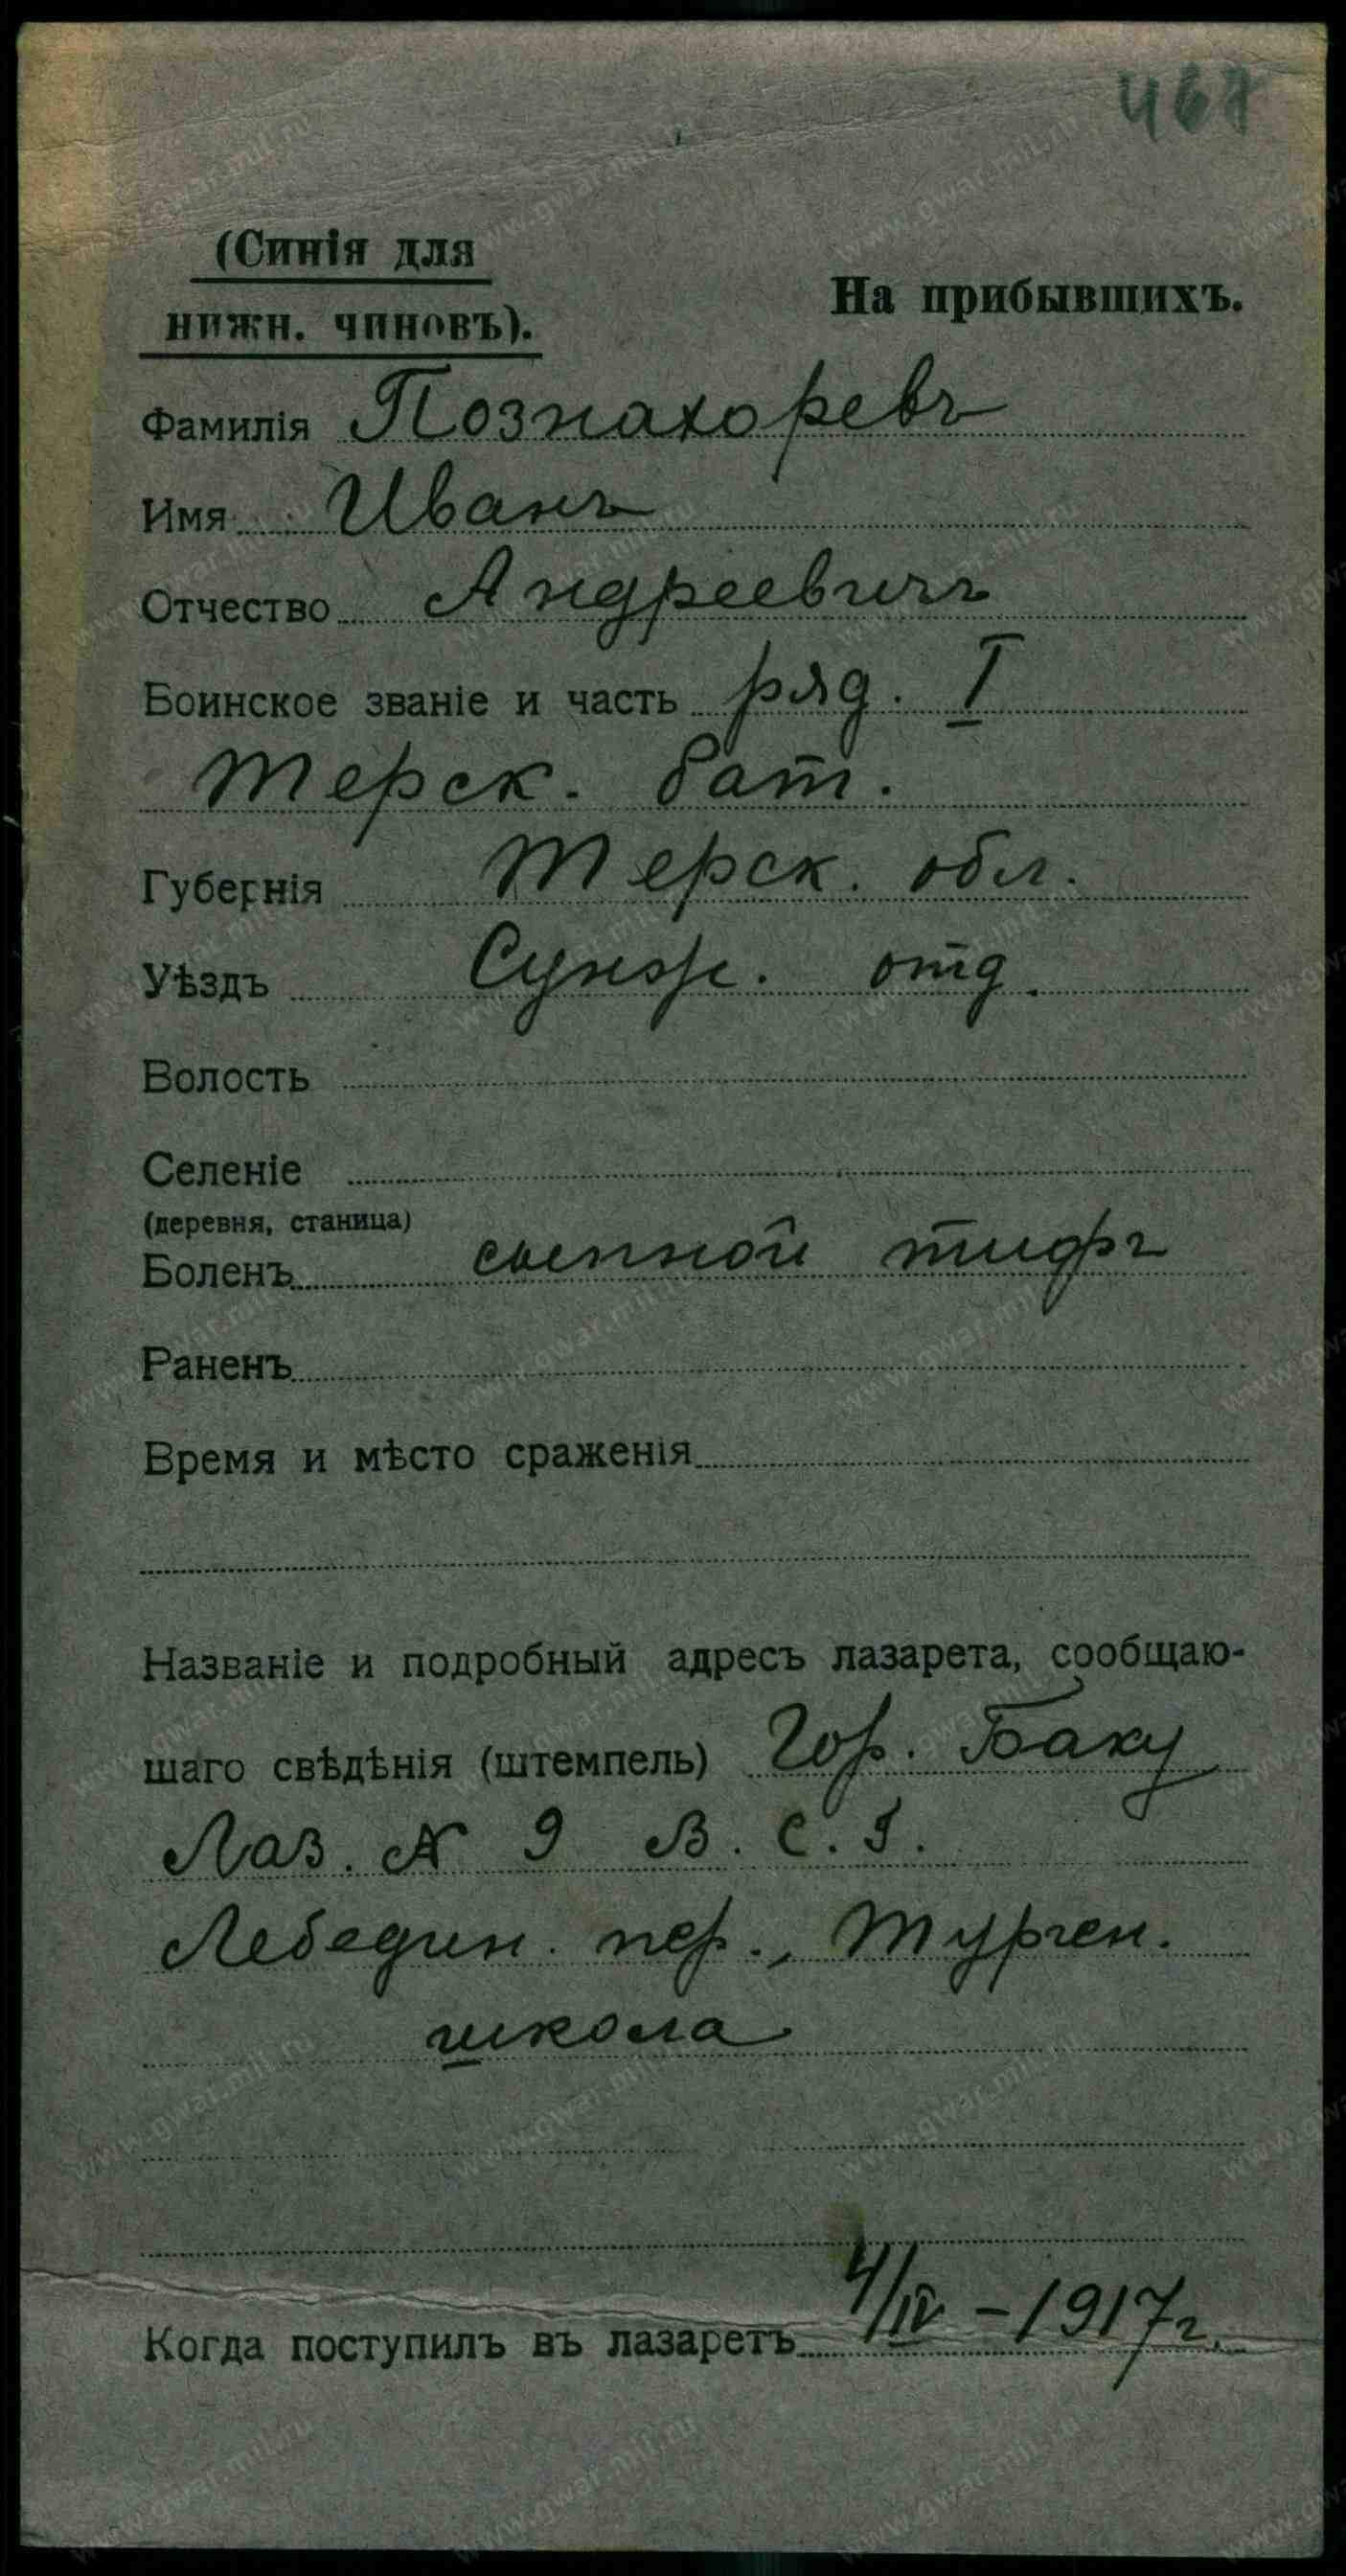 467
(Синія для
нижн. чиновъ).
На прибывшихъ.
Фамилія Познахоревъ
Имя Иванъ
Отчество Андреевичъ
Воинское званіе и часть ряд. I
Терск. бат.
Губернія Терск. обл.
Уѣздъ Сунж. отд.
Волость
Селеніе
(деревня, станица)
Боленъ сыпной тифъ
Раненъ
Время и мѣсто сраженія
Названіе и подробный адресъ лазарета, сообщаю-
шаго свѣдѣнія (штемпель) Гор. Баку
Лаз. № 9 В. С. Г.
Лебедин. пер., Турген.
школа
Когда поступилъ въ лазаретъ 4/IV – 1917 г.